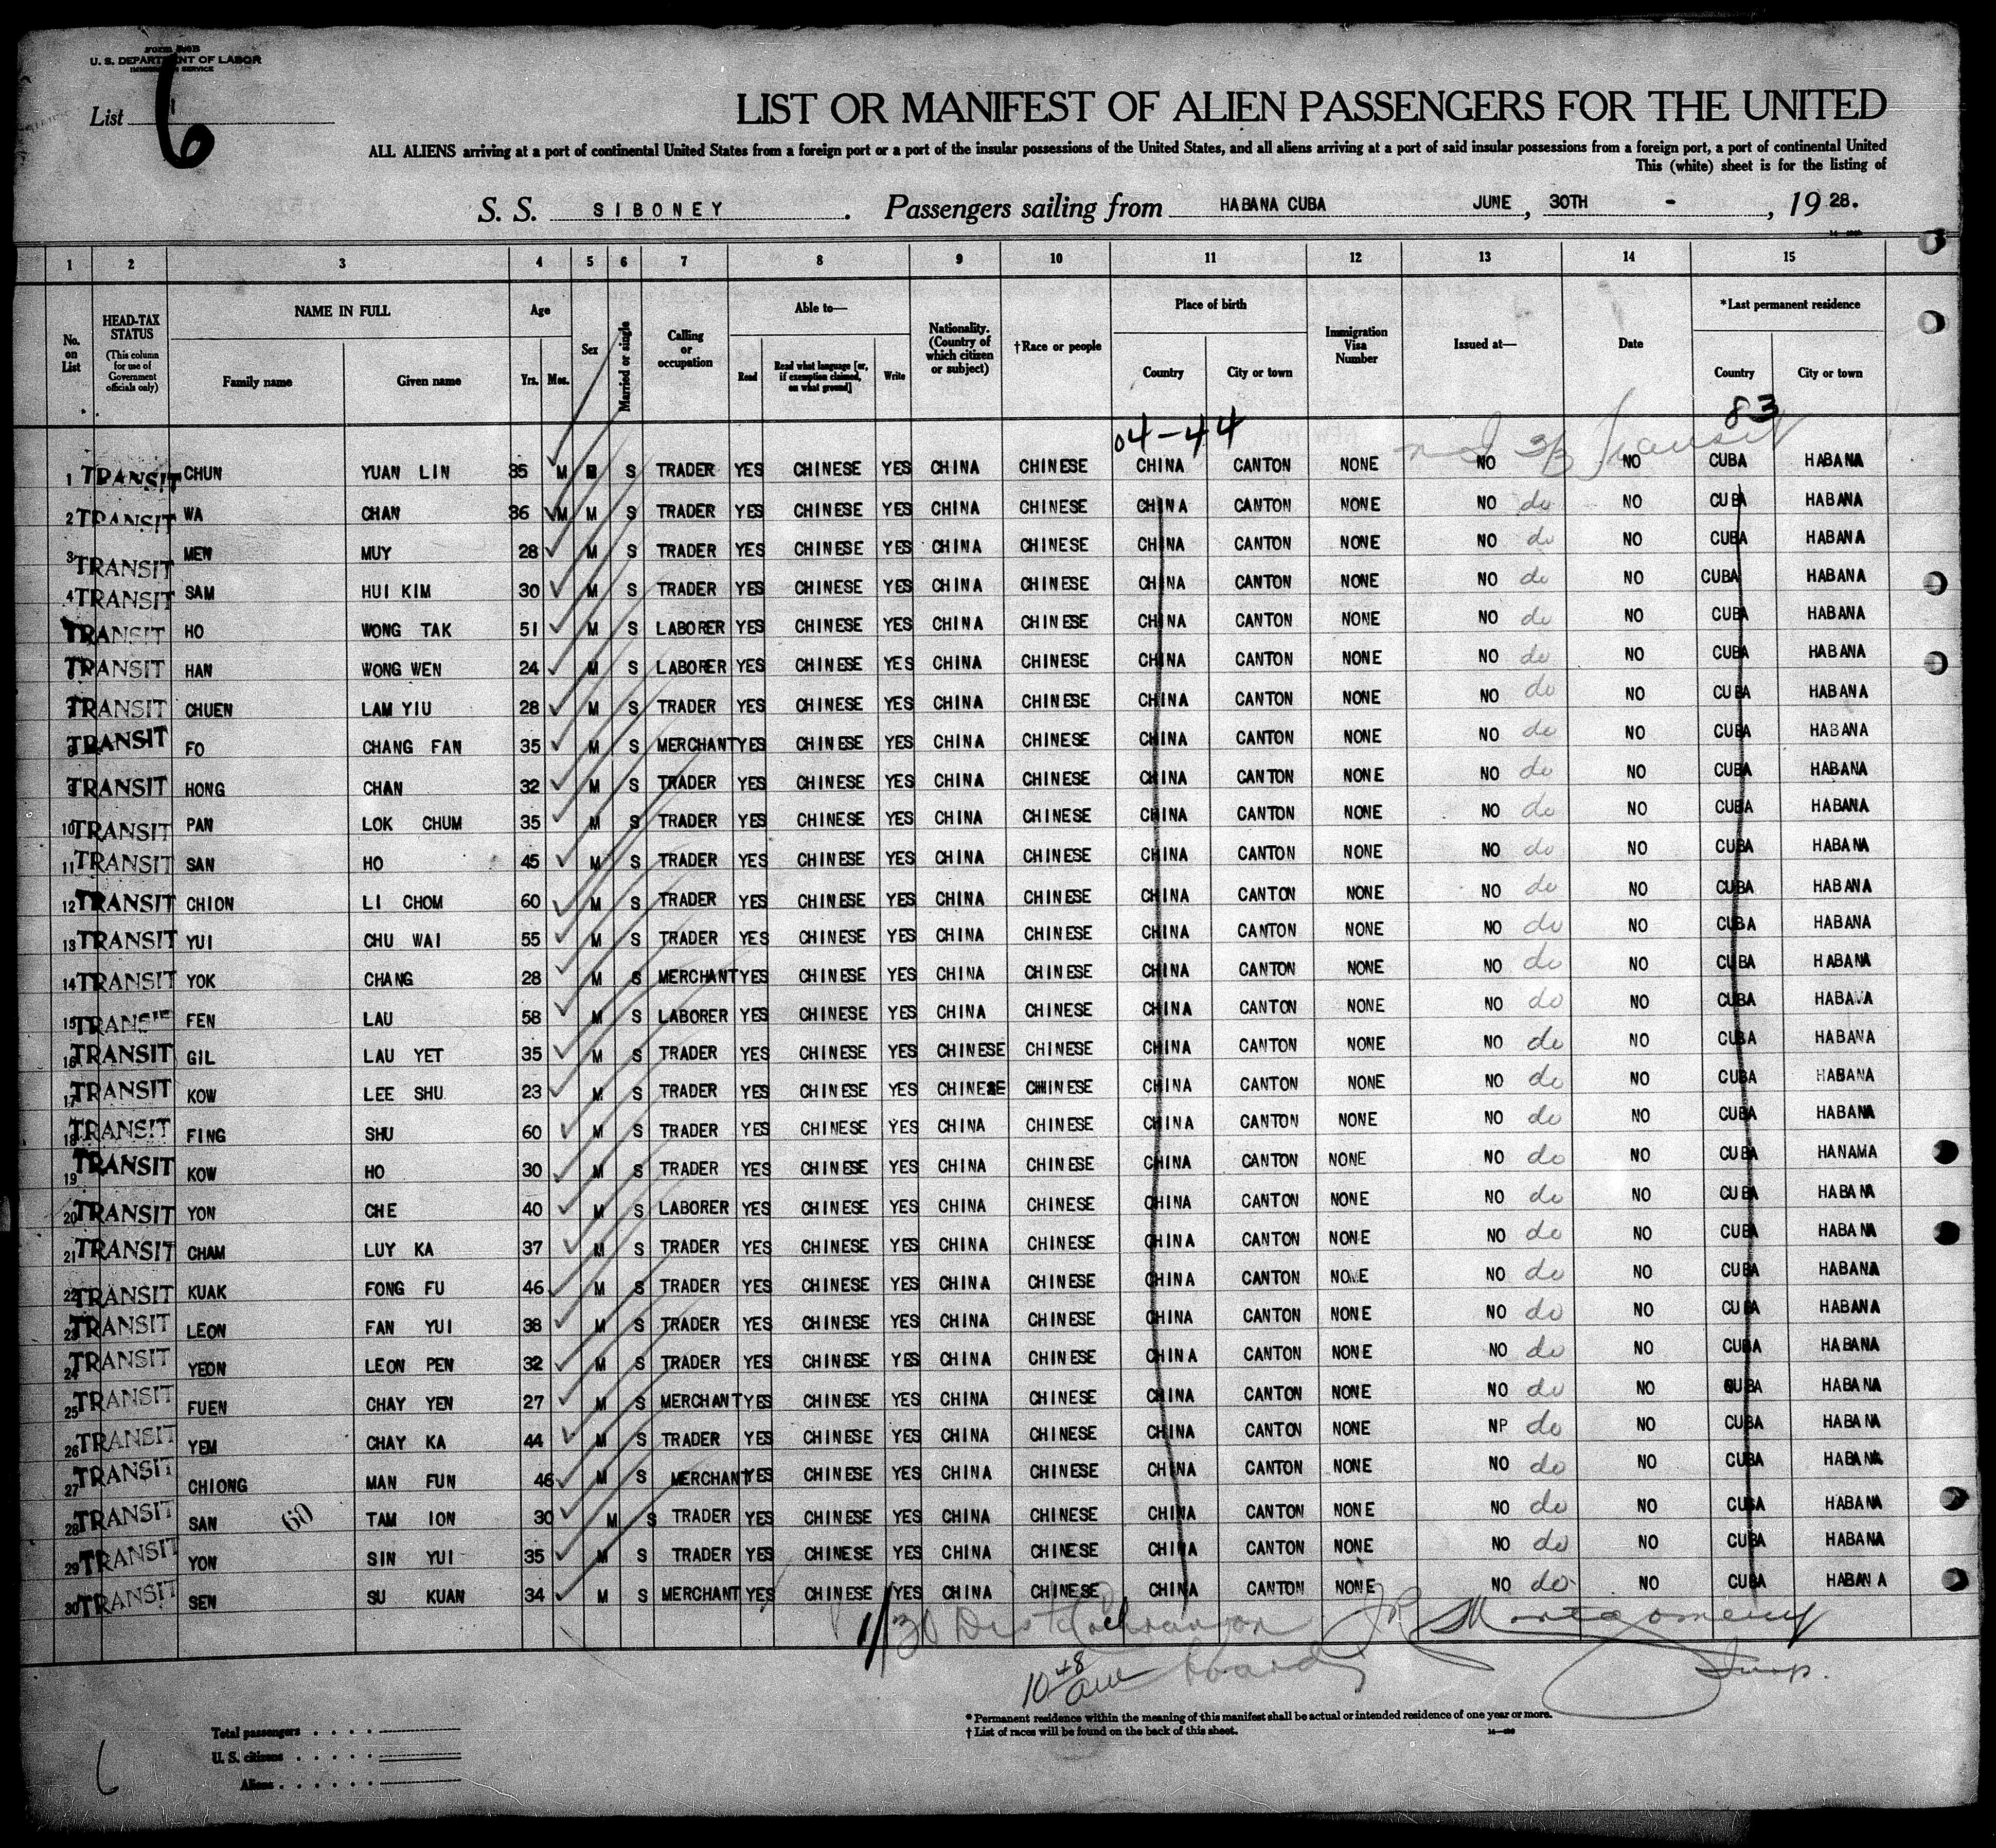 Form 500B
U. S. DEPARTMENT OF LABOR
IMMIGRATION SERVICE
List 6
LIST OR MANIFEST OF ALIEN PASSENGERS FOR THE UNITED
ALL ALIENS arriving at a port of continental United States from a foreign port or a port of the insular possessions of the United States, and all aliens arriving at a port of said insular possessions from a foreign port, a port of continental United
This (white) sheet is for the listing of
S. S. SIBONEY. Passengers sailing from HABANA CUBA JUNE, 30TH - , 19 28.
1 2 3 4 5 6 7 8 9 10 11 12 13 14 15
No. on List
HEAD-TAX STATUS (This column for use of Government officials only)
NAME IN FULL Family name Given name
Age Yrs. Mos.
Sex
Married or single
Calling or occupation
Able to— Read Read what language [or, if exemption claimed, on what ground] Write
Nationality. (Country of which citizen or subject)
†Race or people
Place of birth Country City or town
Immigration Visa Number
Issued at—
Date
*Last permanent residence Country City or town
04-44 83
1 TRANSIT CHUN YUAN LIN 35 M S TRADER YES CHINESE YES CHINA CHINESE CHINA CANTON NONE NO NO CUBA HABANA
2 TRANSIT WA CHAN 36 M M S TRADER YES CHINESE YES CHINA CHINESE CHINA CANTON NONE NO do NO CUBA HABANA
3 TRANSIT MEN MUY 28 M S TRADER YES CHINESE YES CHINA CHINESE CHINA CANTON NONE NO do NO CUBA HABANA
4 TRANSIT SAM HUI KIM 30 M S TRADER YES CHINESE YES CHINA CHINESE CHINA CANTON NONE NO do NO CUBA HABANA
TRANSIT HO WONG TAK 51 M S LABORER YES CHINESE YES CHINA CHINESE CHINA CANTON NONE NO do NO CUBA HABANA
TRANSIT HAN WONG WEN 24 M S LABORER YES CHINESE YES CHINA CHINESE CHINA CANTON NONE NO do NO CUBA HABANA
TRANSIT CHUEN LAM YIU 28 M S TRADER YES CHINESE YES CHINA CHINESE CHINA CANTON NONE NO do NO CUBA HABANA
8 TRANSIT FO CHANG FAN 35 M S MERCHANT YES CHINESE YES CHINA CHINESE CHINA CANTON NONE NO do NO CUBA HABANA
9 TRANSIT HONG CHAN 32 M S TRADER YES CHINESE YES CHINA CHINESE CHINA CANTON NONE NO do NO CUBA HABANA
10 TRANSIT PAN LOK CHUM 35 M S TRADER YES CHINESE YES CHINA CHINESE CHINA CANTON NONE NO do NO CUBA HABANA
11 TRANSIT SAN HO 45 M S TRADER YES CHINESE YES CHINA CHINESE CHINA CANTON NONE NO do NO CUBA HABANA
12 TRANSIT CHION LI CHOM 60 M S TRADER YES CHINESE YES CHINA CHINESE CHINA CANTON NONE NO do NO CUBA HABANA
13 TRANSIT YUI CHU WAI 55 M S TRADER YES CHINESE YES CHINA CHINESE CHINA CANTON NONE NO do NO CUBA HABANA
14 TRANSIT YOK CHANG 28 M S MERCHANT YES CHINESE YES CHINA CHINESE CHINA CANTON NONE NO do NO CUBA HABANA
15 TRANSIT FEN LAU 58 M S LABORER YES CHINESE YES CHINA CHINESE CHINA CANTON NONE NO do NO CUBA HABANA
16 TRANSIT GIL LAU YET 35 M S TRADER YES CHINESE YES CHINESE CHINESE CHINA CANTON NONE NO do NO CUBA HABANA
17 TRANSIT KOW LEE SHU 23 M S TRADER YES CHINESE YES CHINESE CHINESE CHINA CANTON NONE NO do NO CUBA HABANA
18 TRANSIT FING SHU 60 M S TRADER YES CHINESE YES CHINA CHINESE CHINA CANTON NONE NO do NO CUBA HABANA
19 TRANSIT KOW HO 30 M S TRADER YES CHINESE YES CHINA CHINESE CHINA CANTON NONE NO do NO CUBA HANAMA
20 TRANSIT YON CHE 40 M S LABORER YES CHINESE YES CHINA CHINESE CHINA CANTON NONE NO do NO CUBA HABANA
21 TRANSIT CHAM LUY KA 37 M S TRADER YES CHINESE YES CHINA CHINESE CHINA CANTON NONE NO do NO CUBA HABANA
22 TRANSIT KUAK FONG FU 46 M S TRADER YES CHINESE YES CHINA CHINESE CHINA CANTON NONE NO do NO CUBA HABANA
23 TRANSIT LEON FAN YUI 38 M S TRADER YES CHINESE YES CHINA CHINESE CHINA CANTON NONE NO do NO CUBA HABANA
24 TRANSIT YEON LEON PEN 32 M S TRADER YES CHINESE YES CHINA CHINESE CHINA CANTON NONE NO do NO CUBA HABANA
25 TRANSIT FUEN CHAY YEN 27 M S MERCHANT YES CHINESE YES CHINA CHINESE CHINA CANTON NONE NO do NO CUBA HABANA
26 TRANSIT YEM CHAY KA 44 M S TRADER YES CHINESE YES CHINA CHINESE CHINA CANTON NONE NP do NO CUBA HABANA
27 TRANSIT CHIONG MAN FUN 46 M S MERCHANT YES CHINESE YES CHINA CHINESE CHINA CANTON NONE NO do NO CUBA HABANA
28 TRANSIT SAN 60 TAM ION 30 M S TRADER YES CHINESE YES CHINA CHINESE CHINA CANTON NONE NO do NO CUBA HABANA
29 TRANSIT YON SIN YUI 35 M S TRADER YES CHINESE YES CHINA CHINESE CHINA CANTON NONE NO do NO CUBA HABANA
30 TRANSIT SEN SU KUAN 34 M S MERCHANT YES CHINESE YES CHINA CHINESE CHINA CANTON NONE NO do NO CUBA HABANA
Montgomery
Insp.
10 48
*Permanent residence within the meaning of this manifest shall be actual or intended residence of one year or more.
†List of races will be found on the back of this sheet.
Total passengers . . . .
U. S. citizens . . . . .
Aliens . . . . . .
6